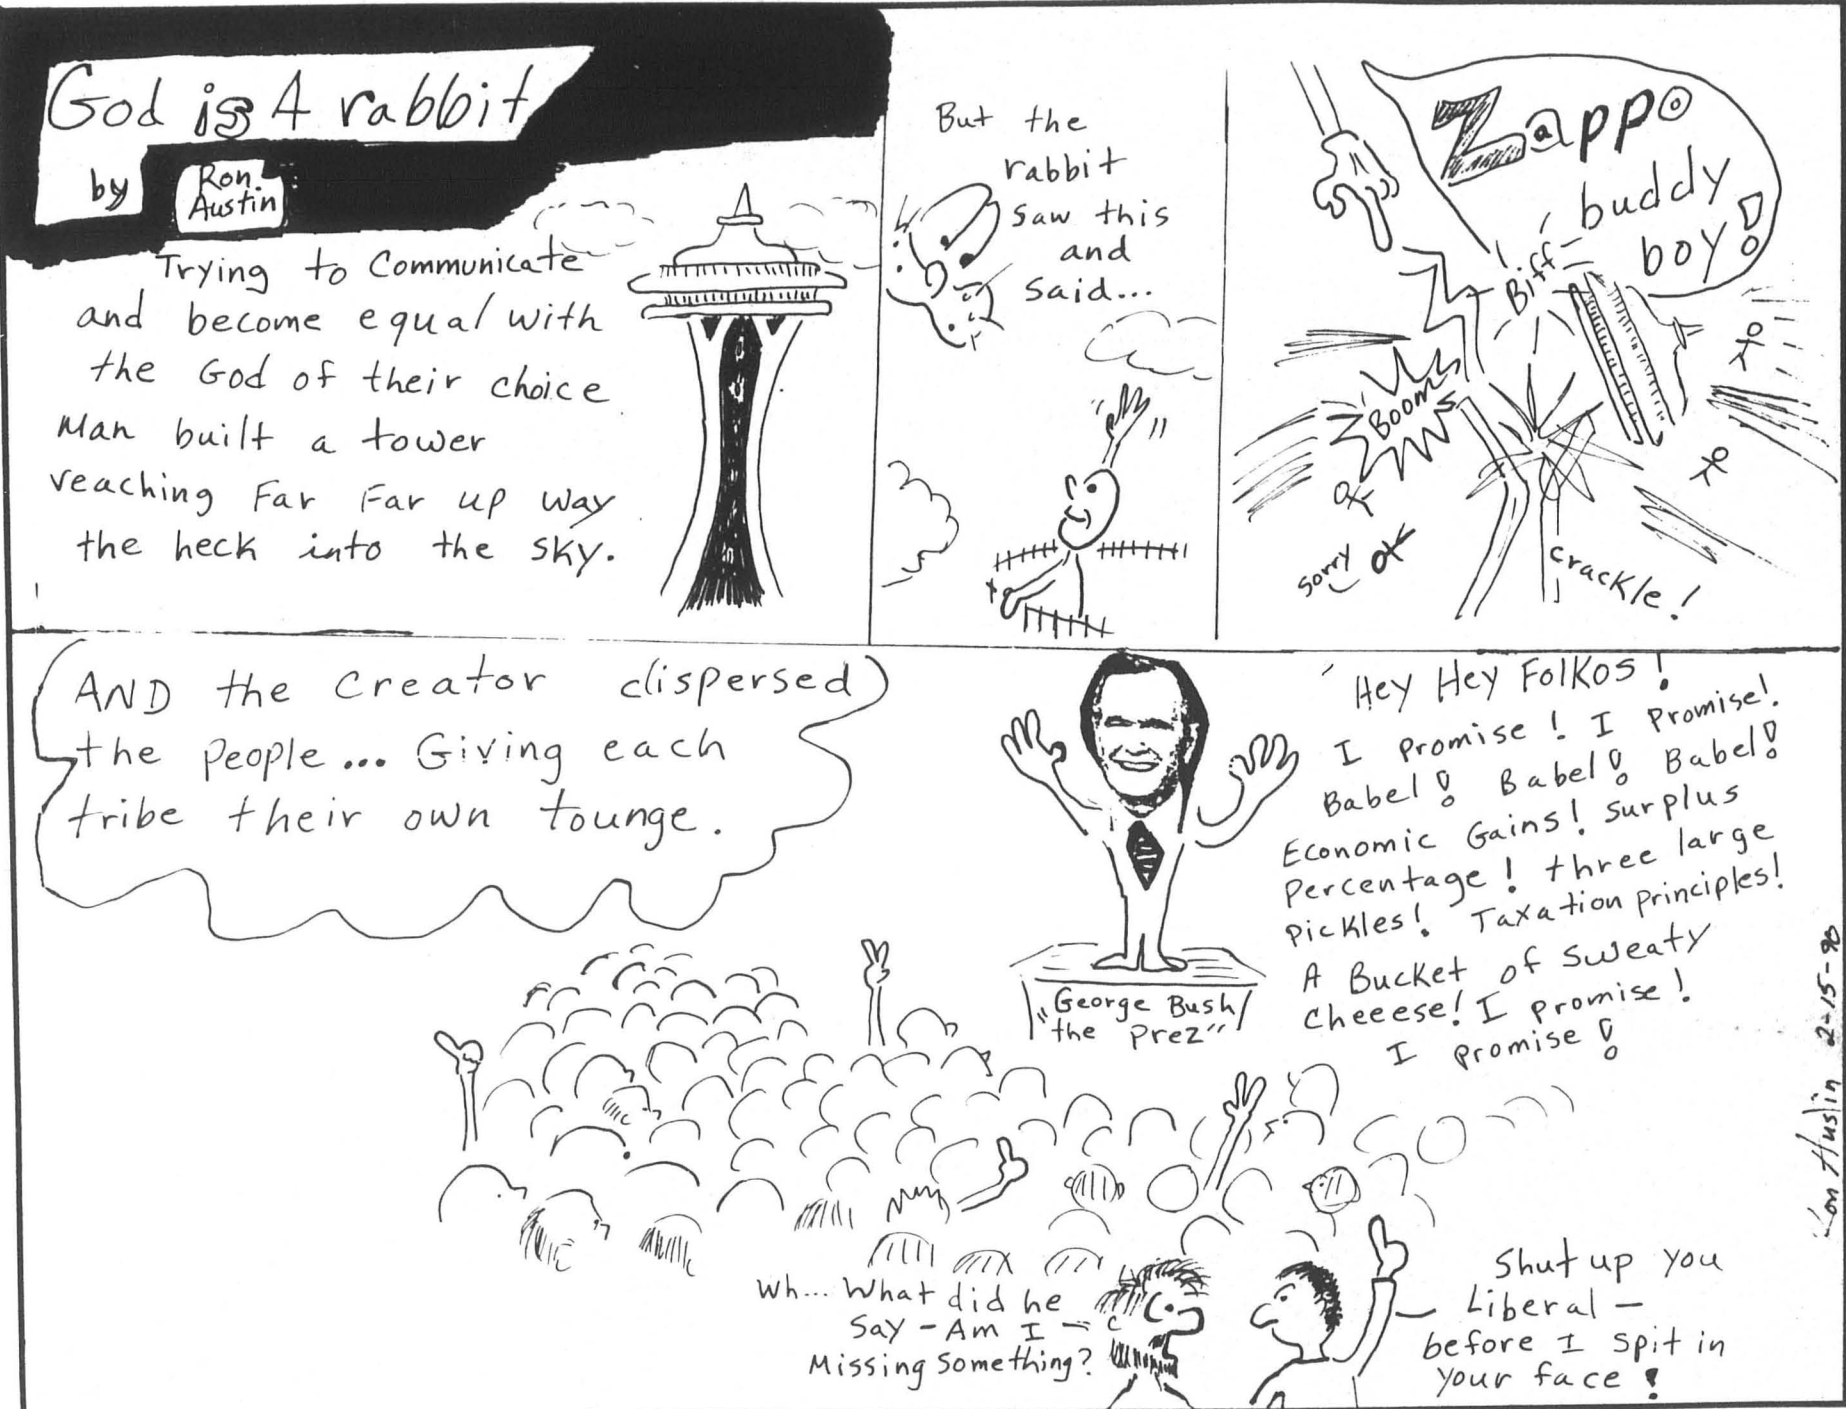 God is A rabbit
by
Ron
Austin
Trying to communicate
and become equal with
the God of their choice
Man built a tower
reaching Far Far up way
the heck into the sky.
But the
rabbit
saw this
and
said...
Zappo
buddy
boy!
Biff
Boom
sorry
crackle!
AND the Creator dispersed
the people... Giving each
tribe their own tounge.
Hey Hey Folkos!
I promise! I promise!
Babel! Babel! Babel!
Economic Gains! Surplus
percentage! three large
pickles! Taxation principles!
A Bucket of sweaty
cheeese! I promise!
I promise!
"George Bush
the Prez"
Wh... What did he
say - Am I -
Missing something?
Shut up you
Liberal -
before I spit in
your face!
Ron Austin 2-15-90